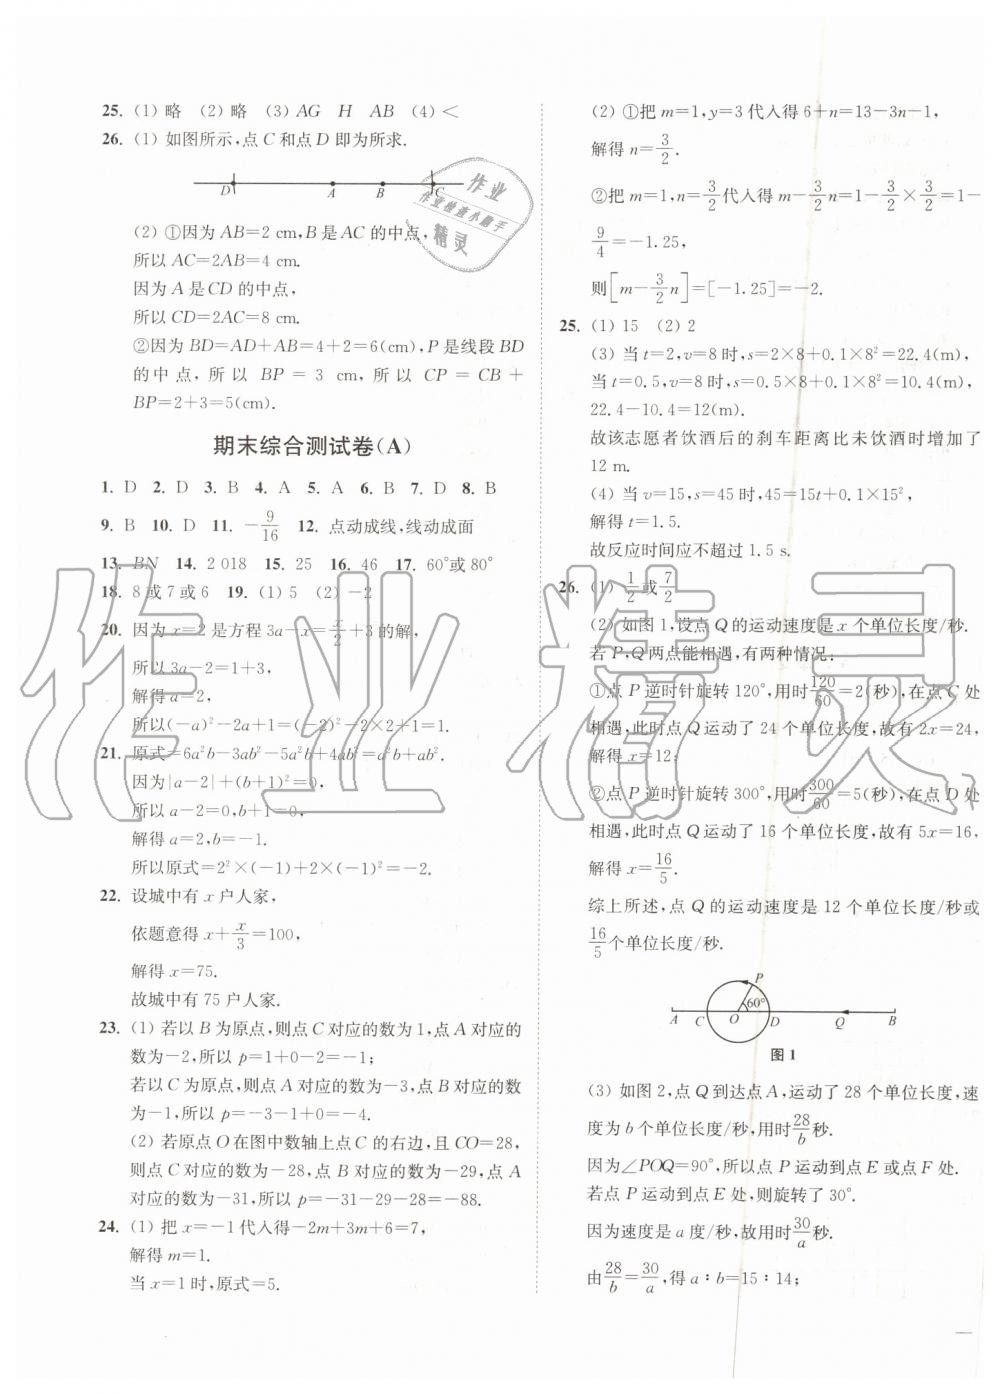 25. (1) 略 (2) 略 (3) AG H AB (4) <
26. (1) 如图所示,点 C 和点 D 即为所求.
D A B C
(2) ①因为 AB=2 cm,B 是 AC 的中点,
所以 AC=2AB=4 cm.
因为 A 是 CD 的中点,
所以 CD=2AC=8 cm.
②因为 BD=AD+AB=4+2=6(cm),P 是线段 BD
的中点,所以 BP = 3 cm,所以 CP = CB +
BP=2+3=5(cm).
期末综合测试卷(A)
1. D 2. D 3. B 4. A 5. A 6. B 7. D 8. B
9. B 10. D 11. -9/16 12. 点动成线,线动成面
13. BN 14. 2 018 15. 25 16. 46 17. 60°或 80°
18. 8 或 7 或 6 19. (1) 5 (2) -2
20. 因为 x=2 是方程 3a-x=x/2+3 的解,
所以 3a-2=1+3,
解得 a=2,
所以(-a)²-2a+1=(-2)²-2×2+1=1.
21. 原式=6a²b-3ab²-5a²b+4ab²=a²b+ab².
因为|a-2|+(b+1)²=0,
所以 a-2=0,b+1=0,
解得 a=2,b=-1.
所以原式=2²×(-1)+2×(-1)²=-2.
22. 设城中有 x 户人家,
依题意得 x+x/3=100,
解得 x=75.
故城中有 75 户人家.
23. (1) 若以 B 为原点,则点 C 对应的数为 1,点 A 对应的
数为-2,所以 p=1+0-2=-1;
若以 C 为原点,则点 A 对应的数为-3,点 B 对应的数
为-1,所以 p=-3-1+0=-4.
(2) 若原点 O 在图中数轴上点 C 的右边,且 CO=28,
则点 C 对应的数为-28,点 B 对应的数为-29,点 A
对应的数为-31,所以 p=-31-29-28=-88.
24. (1) 把 x=-1 代入得-2m+3m+6=7,
解得 m=1.
当 x=1 时,原式=5.
(2) ①把 m=1,y=3 代入得 6+n=13-3n-1,
解得 n=3/2.
②把 m=1,n=3/2代入得 m-3/2n=1-3/2×3/2=1-
9/4=-1.25,
则[m-3/2n]=[-1.25]=-2.
25. (1) 15 (2) 2
(3) 当 t=2,v=8 时,s=2×8+0.1×8²=22.4(m),
当 t=0.5,v=8 时,s=0.5×8+0.1×8²=10.4(m),
22.4-10.4=12(m).
故该志愿者饮酒后的刹车距离比未饮酒时增加了
12 m.
(4) 当 v=15,s=45 时,45=15t+0.1×15²,
解得 t=1.5.
故反应时间应不超过 1.5 s.
26. (1) 1/2或7/2
(2) 如图 1,设点 Q 的运动速度是 x 个单位长度/秒.
若 P,Q 两点能相遇,有两种情况:
①点 P 逆时针旋转 120°,用时120/60=2(秒),在点 C 处
相遇,此时点 Q 运动了 24 个单位长度,故有 2x=24,
解得 x=12;
②点 P 逆时针旋转 300°,用时300/60=5(秒),在点 D 处
相遇,此时点 Q 运动了 16 个单位长度,故有 5x=16,
解得 x=16/5.
综上所述,点 Q 的运动速度是 12 个单位长度/秒或
16/5个单位长度/秒.
P
60°
A C O D Q B
图 1
(3) 如图 2,点 Q 到达点 A,运动了 28 个单位长度,速
度为 b 个单位长度/秒,用时28/b秒.
因为∠POQ=90°,所以点 P 运动到点 E 或点 F 处.
若点 P 运动到点 E 处,则旋转了 30°.
因为速度是 a 度/秒,故用时30/a秒.
由28/b=30/a,得 a∶b=15∶14;
作业
作业检查小助手
精灵
作业精灵